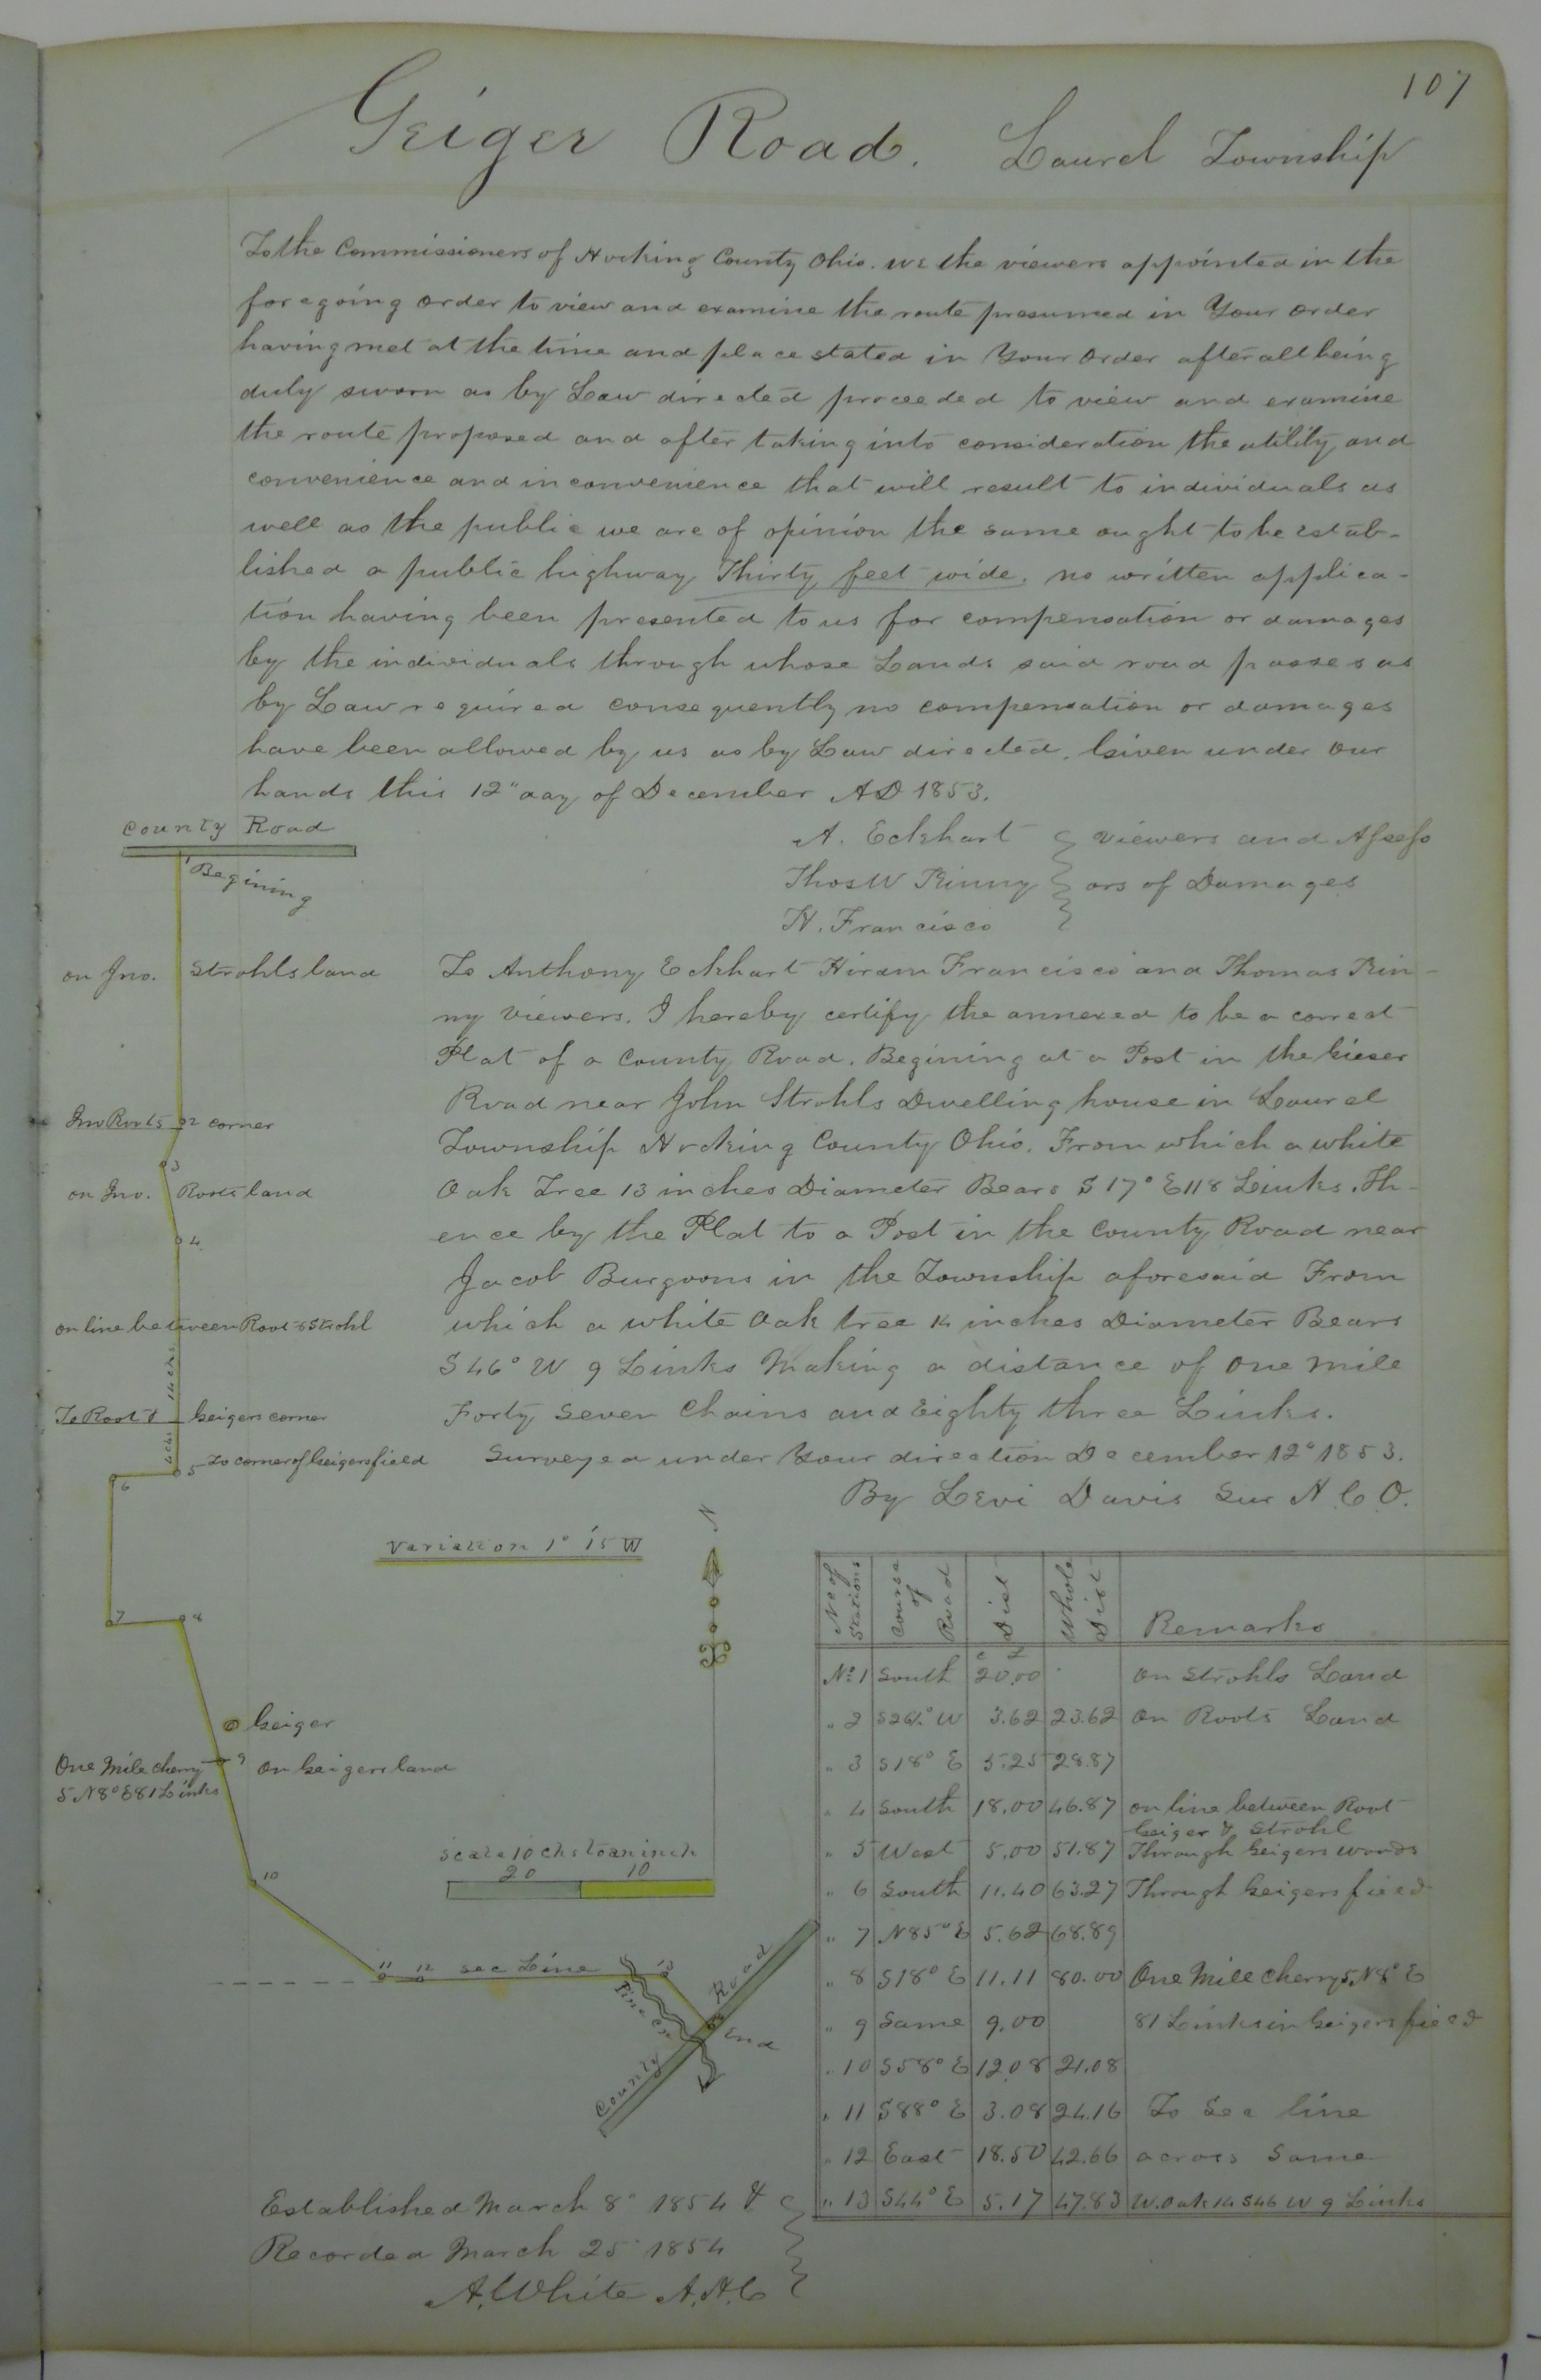 107
Geiger Road. Laurel Township
To the Commissioners of Hocking County Ohio. we the viewers appointed in the
foregoing order to view and examine the route presumed in Your order
having met at the time and place stated in Your order after all being
duly sworn as by Law directed proceeded to view and examine
the route proposed and after taking into consideration the utility and
convenience and inconvenience that will result to individuals as
well as the public we are of opinion the same ought to be estab-
lished a public highway Thirty feet wide. no written applica-
tion having been presented to us for compensation or damages
by the individuals through whose Lands said road passes as
by Law required consequently no compensation or damages
have been allowed by us as by Law directed. Given under our
hands this 12" day of December AD 1853.
A. Eckhart } viewers and Assess
Thos W Kinny } ors of Damages
H. Francisco }
County Road
1 Begining
on Jno. Strohls land
Jno Roots 2 corner
3
on Jno. Roots land
4
on line between Root & Strohl
14 chs
To Root & Geigers corner
4 chs
5 To corner of Geigers field
6
7 8
Geiger
One Mile cherry 9 On Geigers land
5 N8° E 81 Links
10
11 12 sec Line 13
Pine Cr
County Road
End
To Anthony Eckhart Hiram Francisco and Thomas Kin-
ny Viewers. I hereby certify the annexed to be a correct
Plat of a County Road. Begining at a Post in the Gieser
Road near John Strohls Dwelling house in Laurel
Township Hocking County Ohio. From which a white
Oak Tree 13 inches Diameter Bears S 17° E 118 Links. Th-
ence by the Plat to a Post in the County Road near
Jacob Burgoons in the Township aforesaid From
which a white Oak tree 14 inches Diameter Bears
S 46° W 9 Links Making a distance of one mile
Forty Seven Chains and Eighty three Links.
Surveyed under Your direction December 12" 1853.
By Levi Davis Sur H. C. O.
Variation 1° 15 W
N
Scale 10 chs to an inch
20 10
No of Stations Course of Road Dist Whole Dist Remarks
C L
No. 1 South 20.00 On Strohls Land
" 2 S26½° W 3.62 23.62 On Roots Land
" 3 S18° E 5.25 28.87
" 4 South 18.00 46.87 on line between Root
Geiger & Strohl
" 5 West 5.00 51.87 Through Geigers woods
" 6 South 11.40 63.27 Through Geigers field
" 7 N85° E 5.62 68.89
" 8 S18° E 11.11 80.00 One Mile Cherry 5 N8° E
" 9 Same 9.00 81 Links in Geigers field
" 10 S58° E 12.08 21.08
" 11 S88° E 3.08 24.16 To Sec line
" 12 East 18.50 42.66 across Same
" 13 S44° E 5.17 47.83 W. Oak 14 S46 W 9 Links
Established March 8" 1854 &
Recorded March 25" 1854
A. White A.H.C